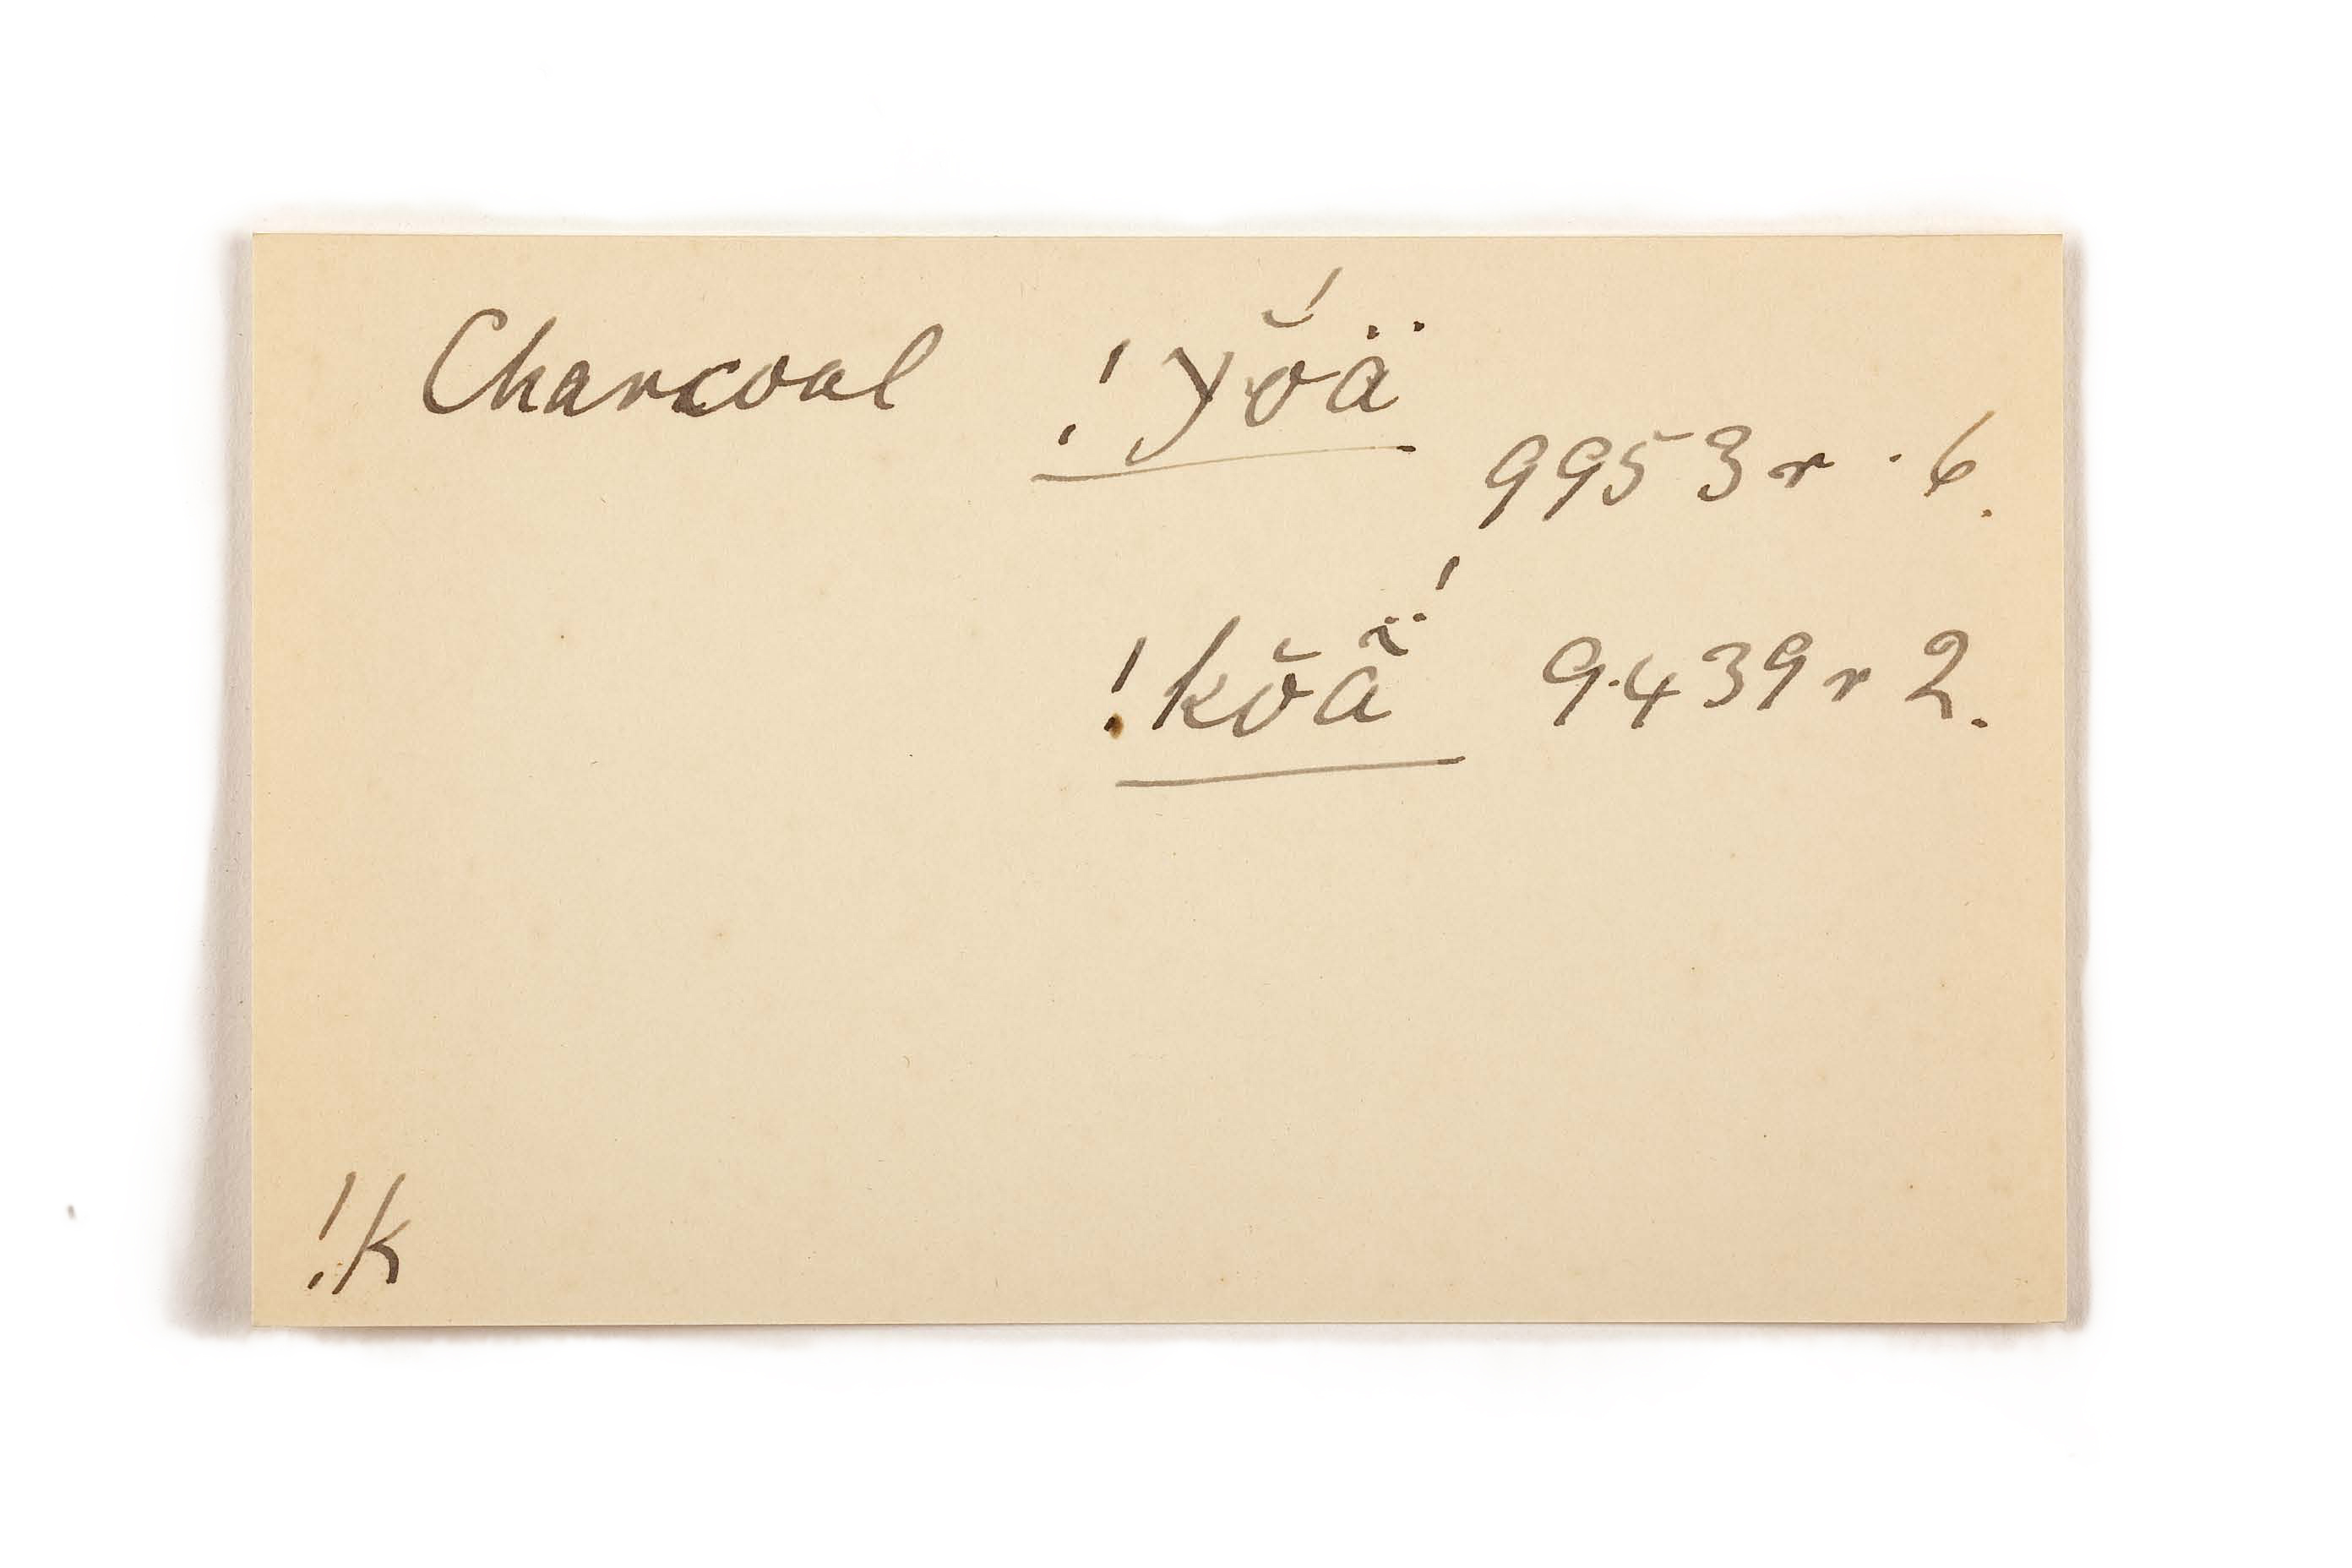 Charcoal !y̆ŏ́ä
9953 r · 6.
!kŏä̃́ 9439 r 2.
!k